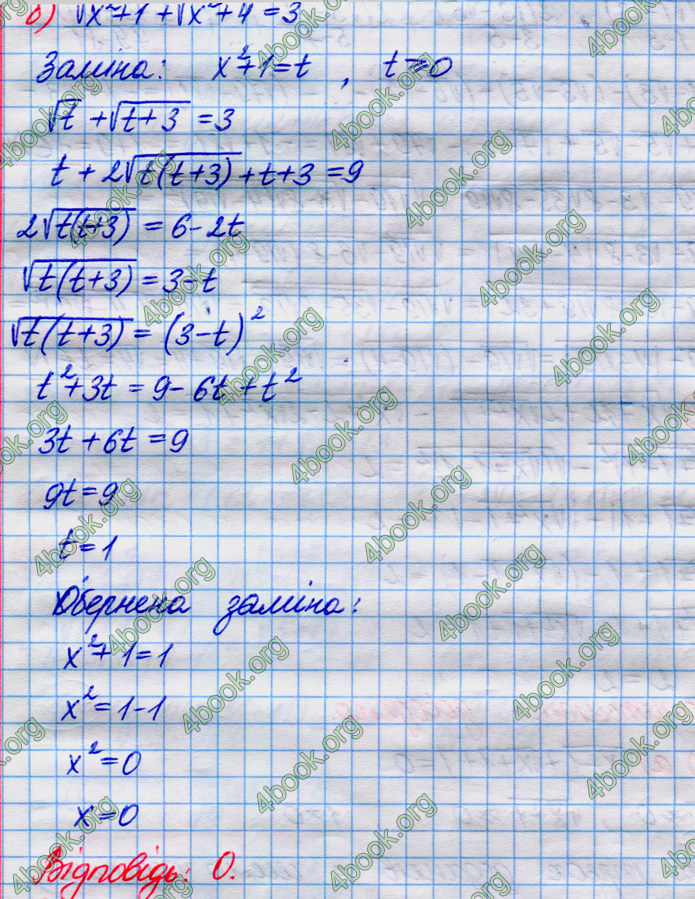 б) √x²+1 + √x²+4 = 3
Заміна: x²+1=t, t≥0
√t + √t+3 = 3
t + 2√t(t+3) + t+3 = 9
2√t(t+3) = 6-2t
√t(t+3) = 3-t
√t(t+3) = (3-t)²
t²+3t = 9-6t+t²
3t+6t=9
9t=9
t=1
Обернена заміна:
x²+1=1
x²=1-1
x²=0
x=0
Відповідь: 0.
4book.org